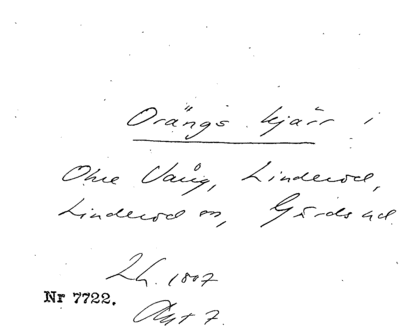 Orängs kjärr i
Ohre Vång, Linderöd,
Linderöd sn, Gärds hd.
Lh. 1807
Nr 7722. Akt 7.